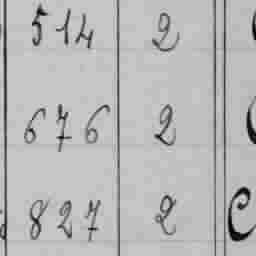 514 2
676 2
827 2